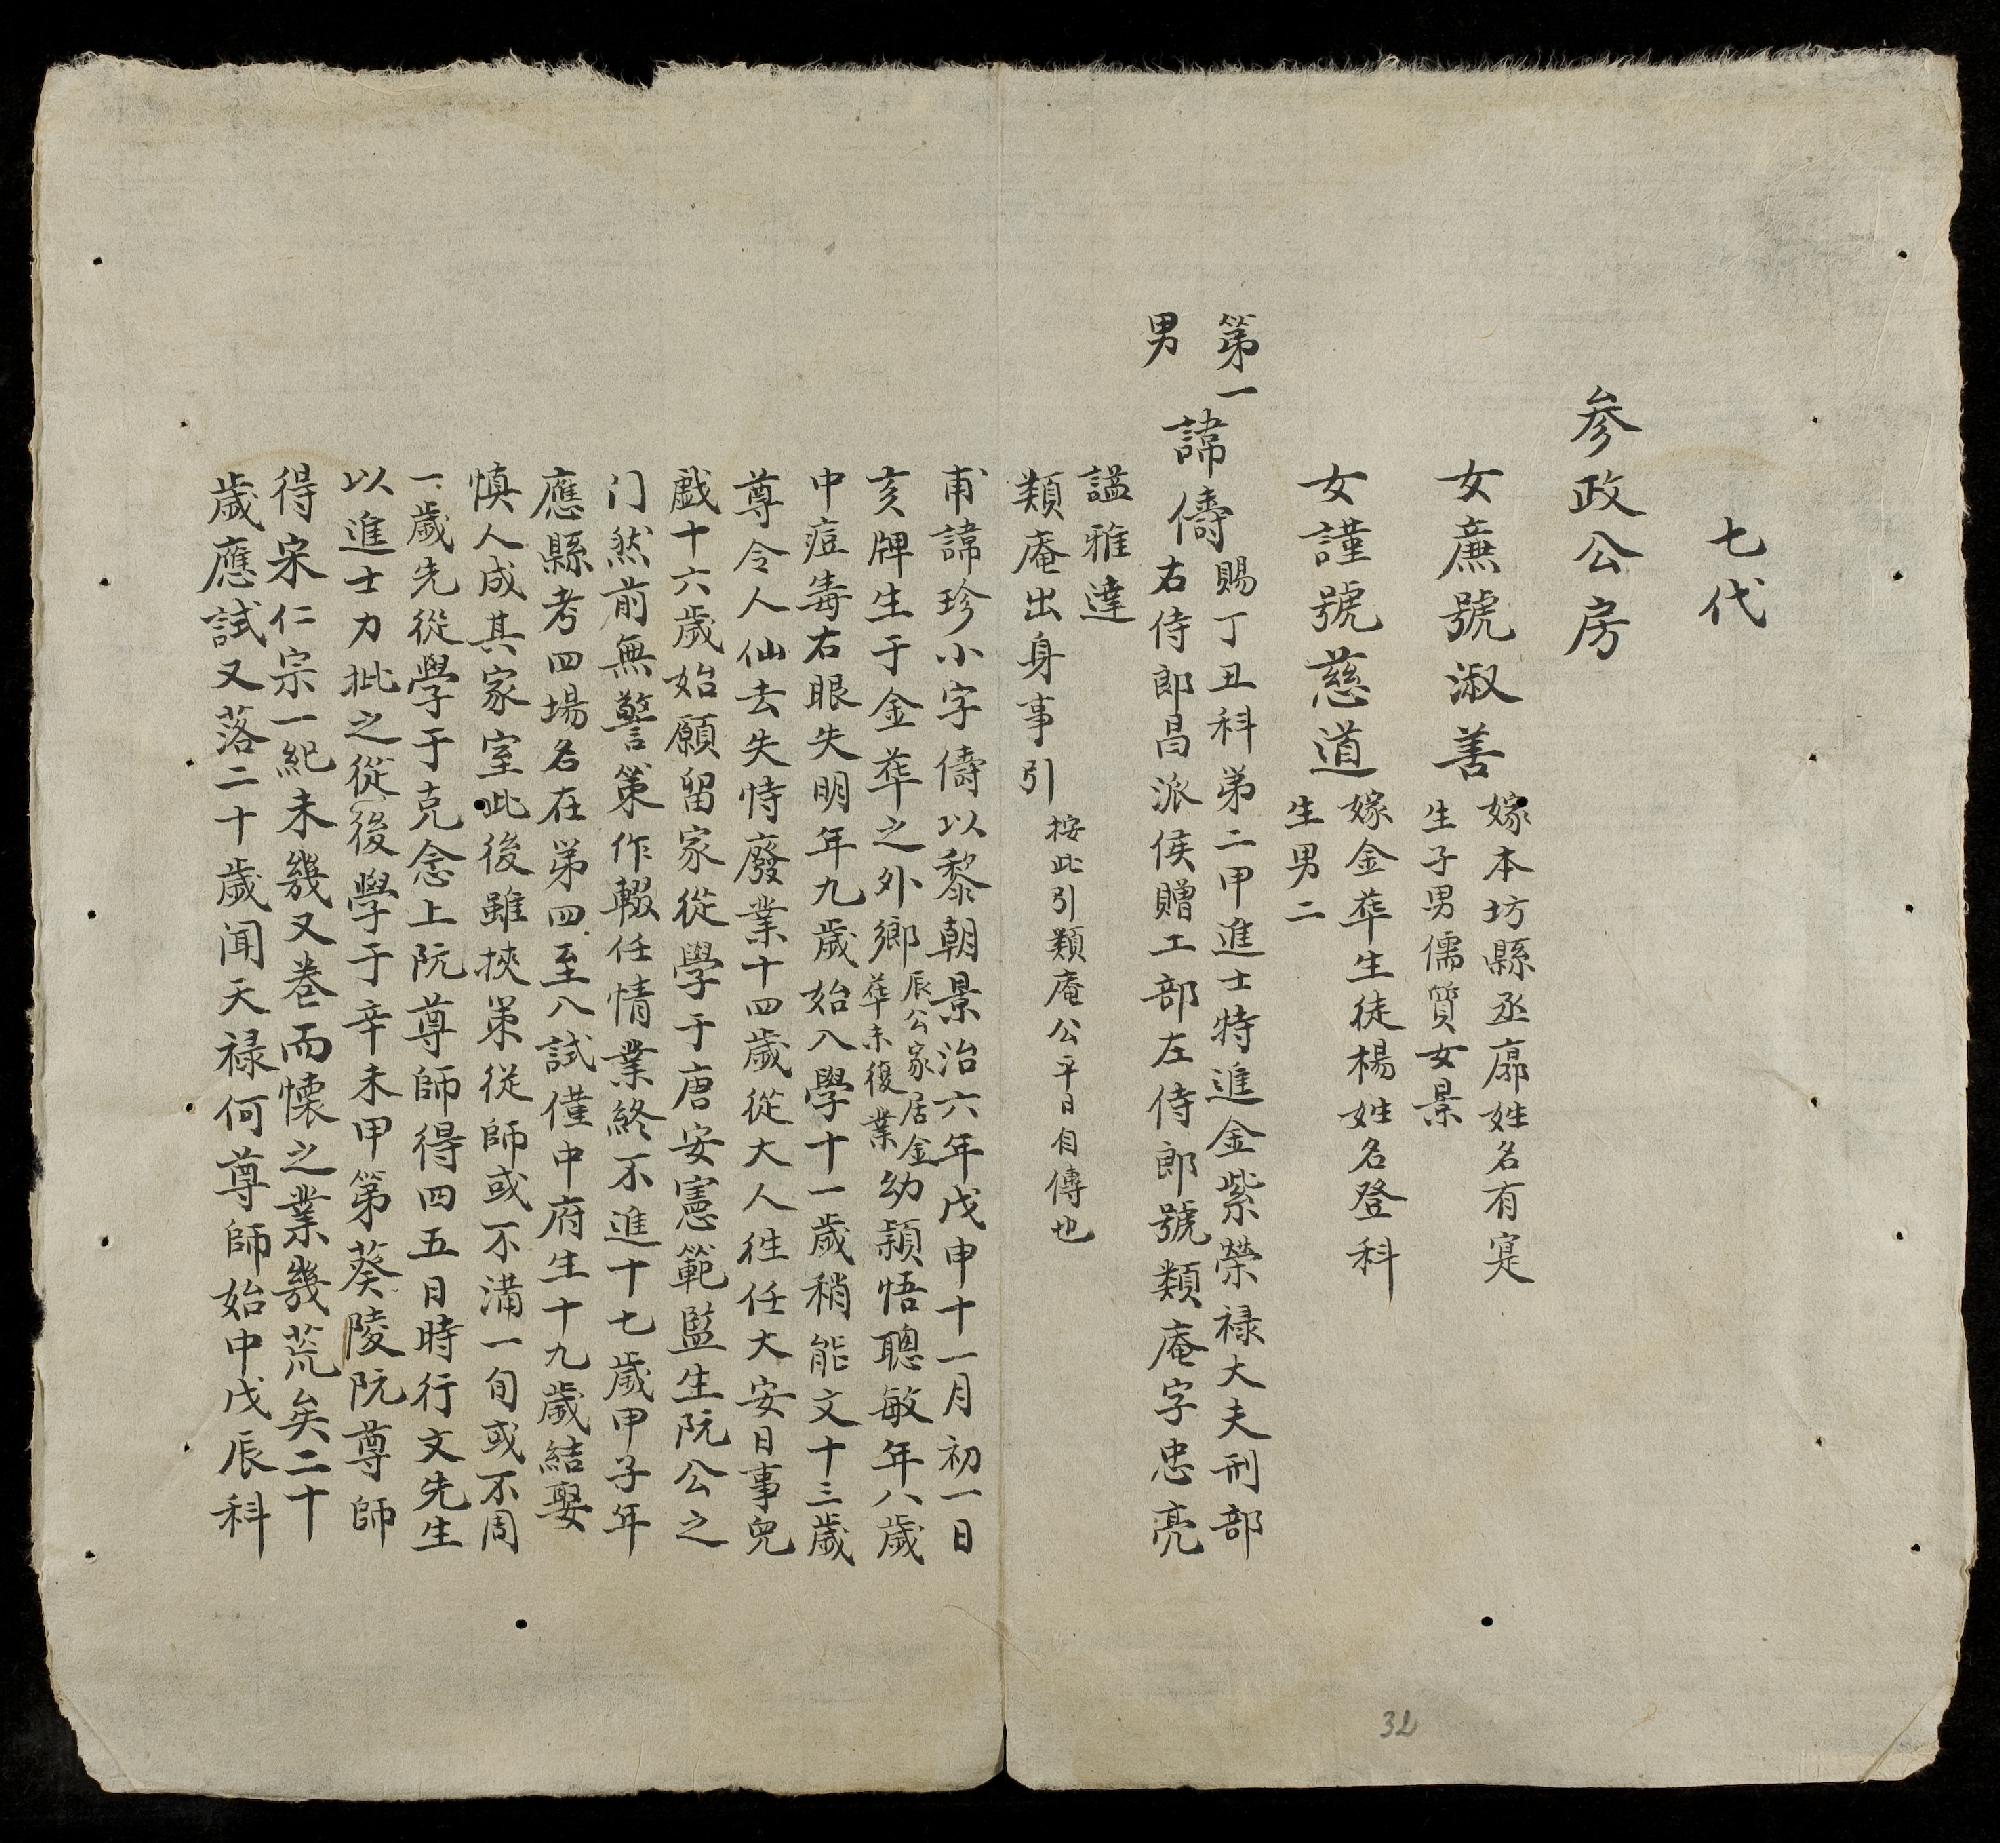 七代
参政公房
女㢘號淑善
嫁本坊縣丞廓姓名有寔
生子男儒質女景
女謹號慈道
嫁金葎生徒楊姓名登科
生男二
第一
男
諱儔
賜丁丑科弟二甲進士特進金紫榮禄大夫刑部
右侍郎昌派侯贈工部左侍郎號類庵字忠亮
謚雅達
類庵出身事引
按此引類庵公平日自傳也
甫諱珍小字儔以黎朝景治六年戊申十一月初一日
亥牌生于金葎之外鄉
辰公家居金
葎未復業
幼穎悟聰敏年八歲
中痘毒右眼失明年九歲始入學十一歲稍能文十三歲
尊令人仙去失恃廢業十四歲從大人徃任大安日事兒
戯十六歲始願留家從學于唐安憲範監生阮公之
门然前無警策作輟任情業終不進十七歲甲子年
應縣考四場名在弟四至八試僅中府生十九歲結娶
慎人成其家室此後雖挾策從師或不滿一旬或不周
一歲先從學于克念上阮尊師得四五日時行文先生
以進士力批之從後學于辛未甲第葵陵阮尊師
得宋仁宗一紀未幾又巻而懐之業幾荒矣二十
歲應試又落二十歲闻天禄何尊師始中戊辰科
32